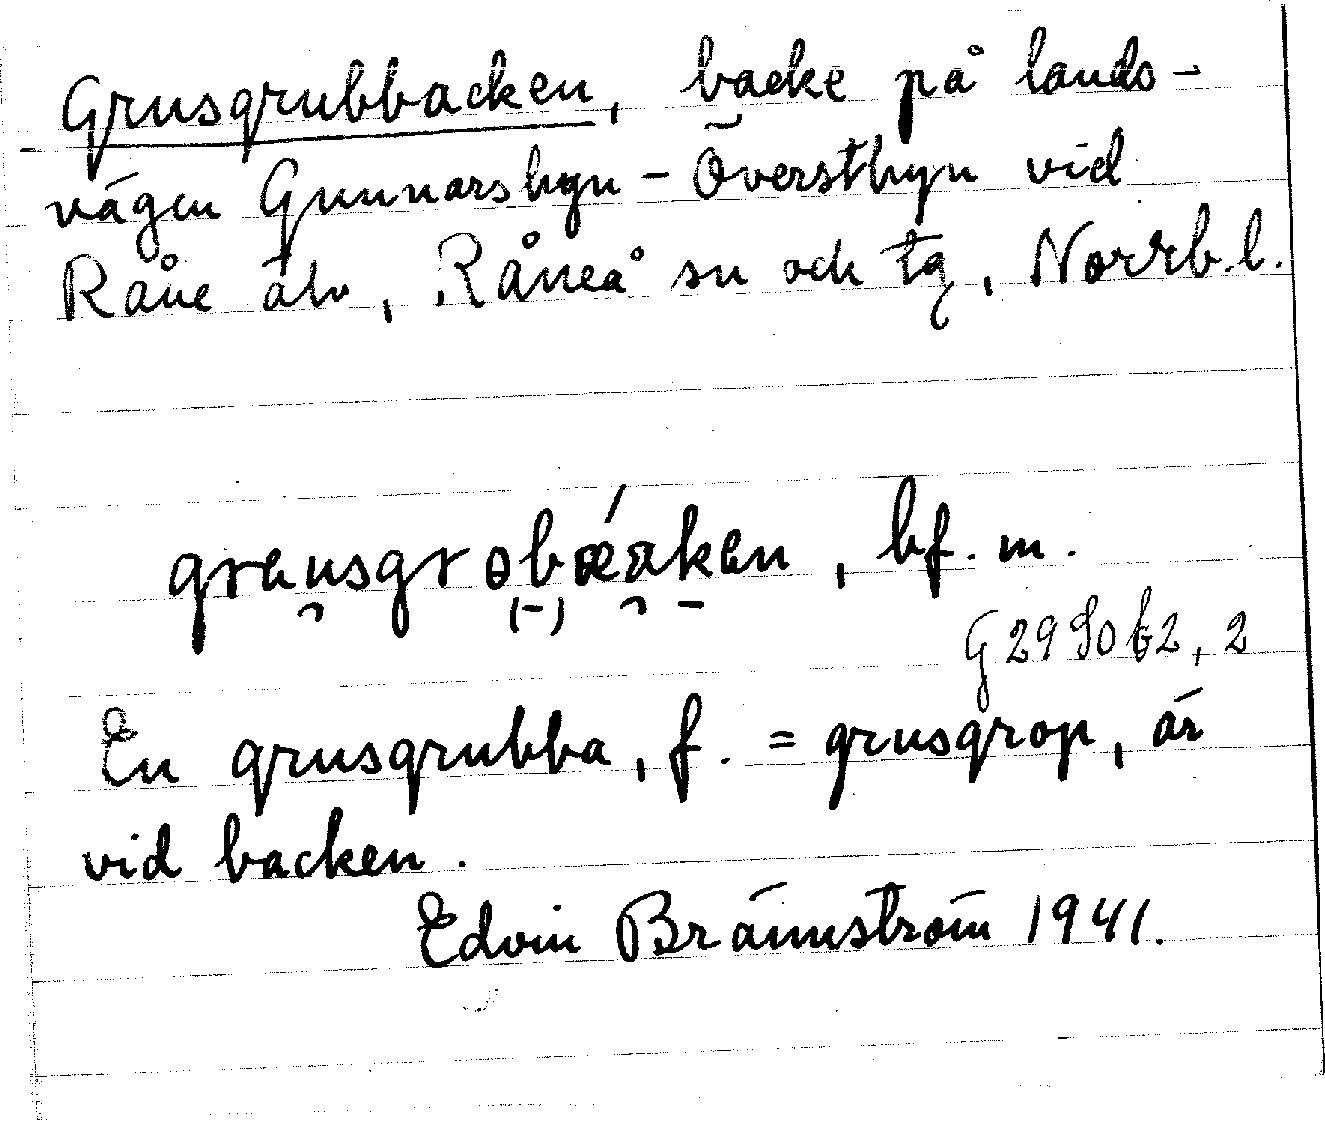 Grusgrubbacken, backe på lands-
vägen Gunnarsbyn - Överstbyn vid
Råne älv, Råneå sn och tg, Norrb.l.
bf. m.
G 29 So b2, 2
En grusgrubba, f. = grusgrop, är
vid backen.
Edvin Brännström 1941.